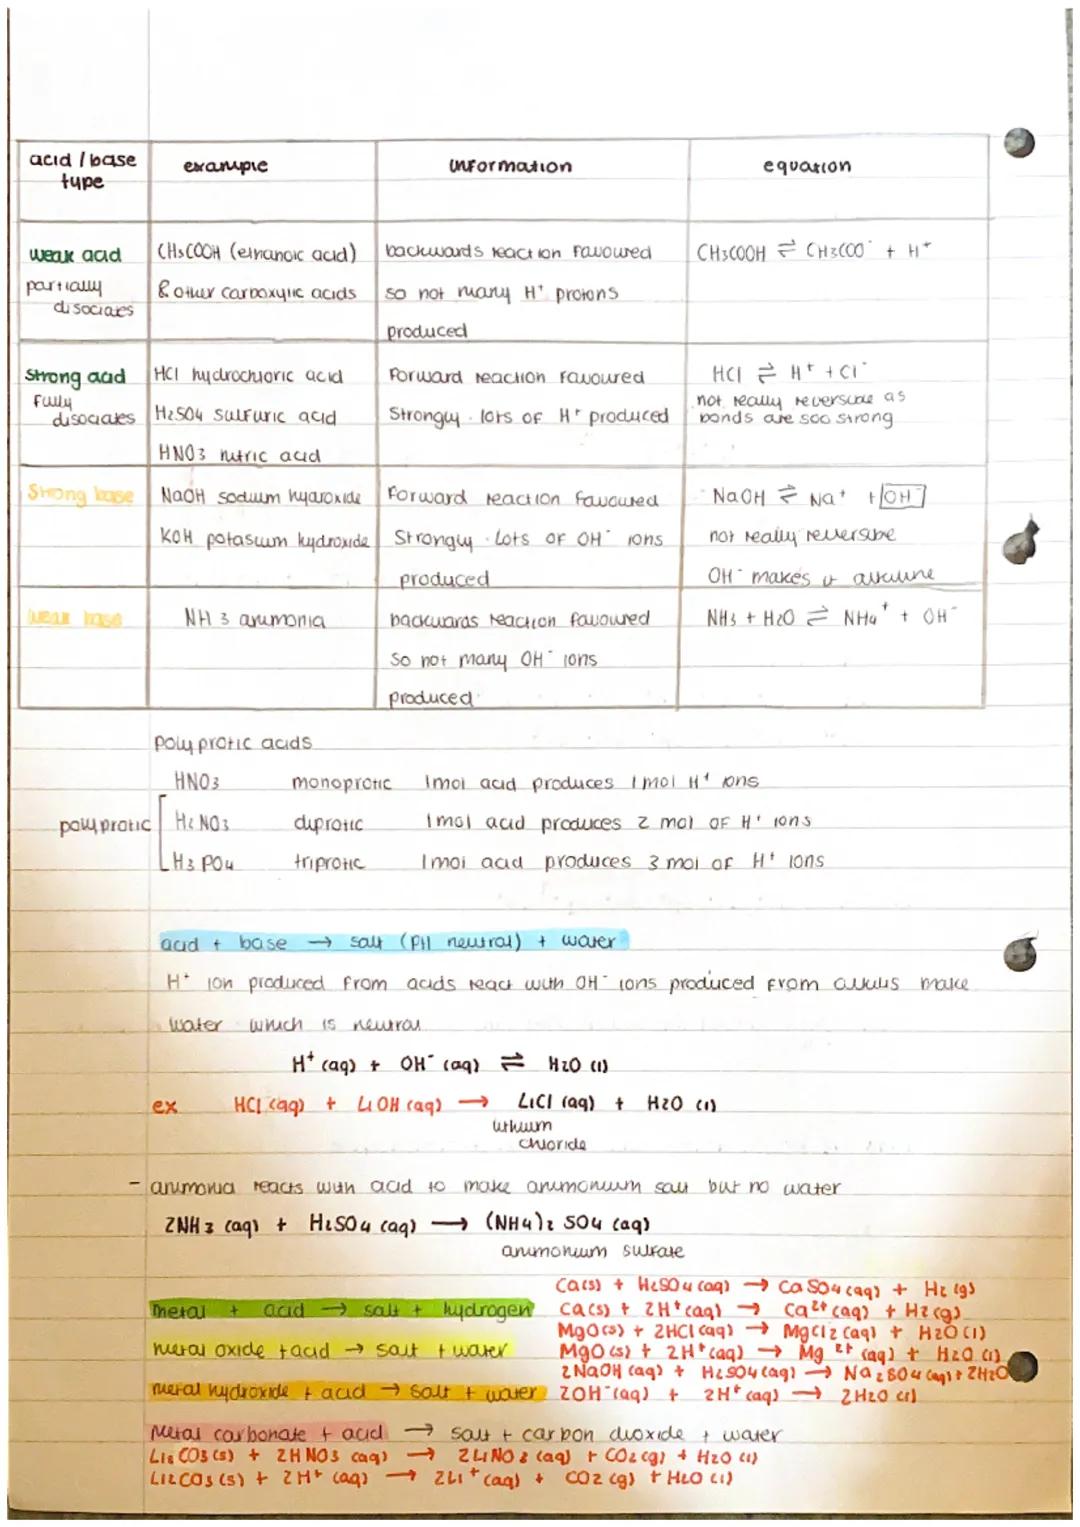 acid / base type | example | information | equation
weak acid partially disociates | CH3COOH (ethanoic acid) & other carboxylic acids | backwards reaction favoured so not many H+ protons produced | CH3COOH ⇌ CH3COO- + H+
strong acid fully disociates | HCl hydrochloric acid H2SO4 sulfuric acid HNO3 nitric acid | forward reaction favoured strongly . lots of H+ produced | HCl ⇌ H+ + Cl- not really reversible as bonds are soo strong
Strong base | NaOH sodium hydroxide KOH potassium hydroxide | forward reaction favoured strongly . Lots of OH- ions produced | NaOH ⇌ Na+ + OH- not really reversible OH- makes it alkaline
weak base | NH3 ammonia | backwards reaction favoured so not many OH- ions produced | NH3 + H2O ⇌ NH4+ + OH-
polyprotic acids
HNO3 monoprotic 1mol acid produces 1 mol H+ ions
polyprotic H2NO3 diprotic 1mol acid produces 2 mol of H+ ions
H3PO4 triprotic 1mol acid produces 3 mol of H+ ions
acid + base → salt (PH neutral) + water
H+ ion produced from acids react with OH- ions produced from alkalis make
water which is neutral
H+ (aq) + OH- (aq) ⇌ H2O (l)
ex HCl (aq) + LiOH (aq) → LiCl (aq) + H2O (l)
lithium
chloride
- ammonia reacts with acid to make ammonium salt but no water
2NH3 (aq) + H2SO4 (aq) → (NH4)2 SO4 (aq)
ammonium sulfate
Ca(s) + H2SO4 (aq) → CaSO4 (aq) + H2 (g)
metal + acid → salt + hydrogen Ca(s) + 2H+ (aq) → Ca2+ (aq) + H2 (g)
MgO(s) + 2HCl (aq) → MgCl2 (aq) + H2O (l)
metal oxide + acid → salt + water MgO (s) + 2H+ (aq) → Mg 2+ (aq) + H2O (l)
2NaOH (aq) + H2SO4 (aq) → Na2SO4 (aq) + 2H2O
metal hydroxide + acid → salt + water 2OH- (aq) + 2H+ (aq) → 2H2O (l)
metal carbonate + acid → salt + carbon dioxide + water
Li2CO3 (s) + 2HNO3 (aq) → 2LiNO3 (aq) + CO2 (g) + H2O (l)
Li2CO3 (s) + 2H+ (aq) → 2Li+ (aq) + CO2 (g) + H2O (l)